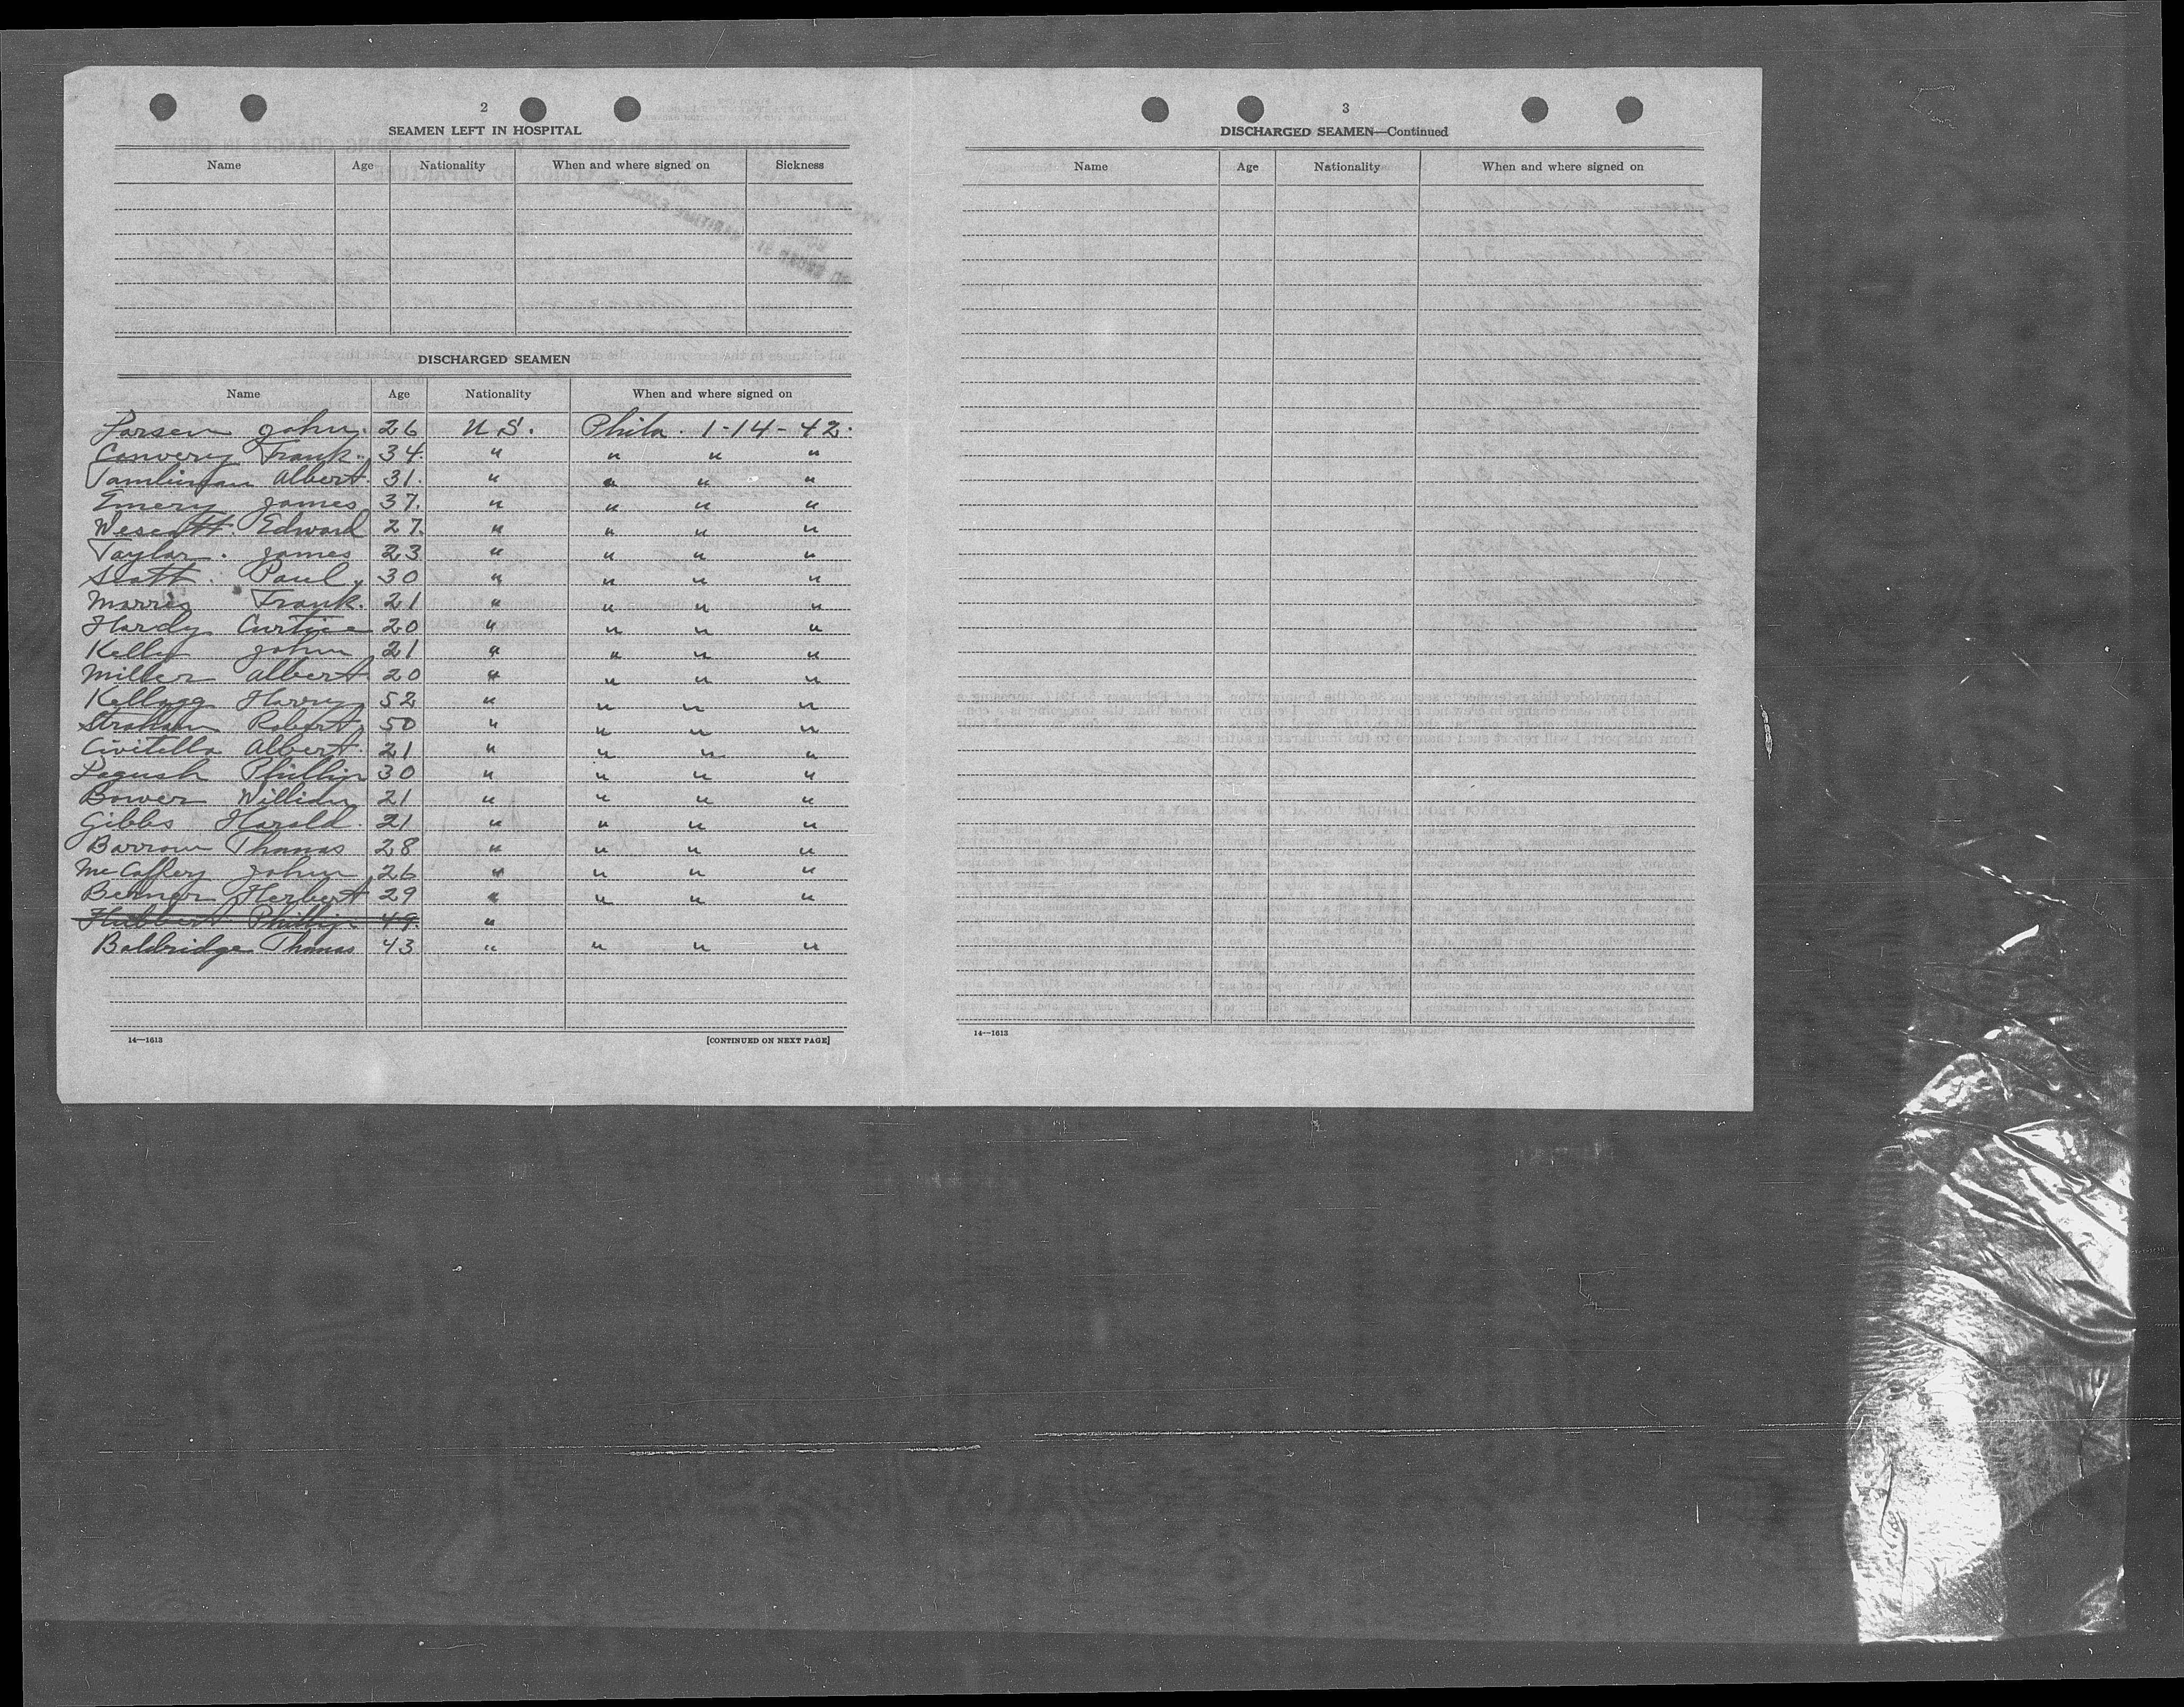 2
SEAMEN LEFT IN HOSPITAL
Name Age Nationality When and where signed on Sickness
DISCHARGED SEAMEN
Name Age Nationality When and where signed on
Larsen John. 26 U.S. Phila. 1-14-42.
Convery Frank. 34. " " " "
Tomlinson Albert. 31. " " " "
Emery James 37. " " " "
Wescott. Edward 27. " " " "
Taylor. James 23 " " " "
Scott. Paul. 30 " " " "
Morris Frank. 21 " " " "
Hardy Curtice 20 " " " "
Kelly John 21 " " " "
Miller Albert 20 " " " "
Kellogg Harry 52 " " " "
Strahan Robert 50 " " " "
Civitella Albert. 21 " " " "
Phillip 30 " " " "
Bower William 21 " " " "
Gibbs Harold. 21 " " " "
Barrow Thomas 28 " " " "
McCaffery John 26 " " " "
Herbert 29 " " " "
Hubbert Phillip 49. "
Baldridge Thomas 43 " " " "
14—1613 [CONTINUED ON NEXT PAGE]
3
DISCHARGED SEAMEN—Continued
Name Age Nationality When and where signed on
14—1613